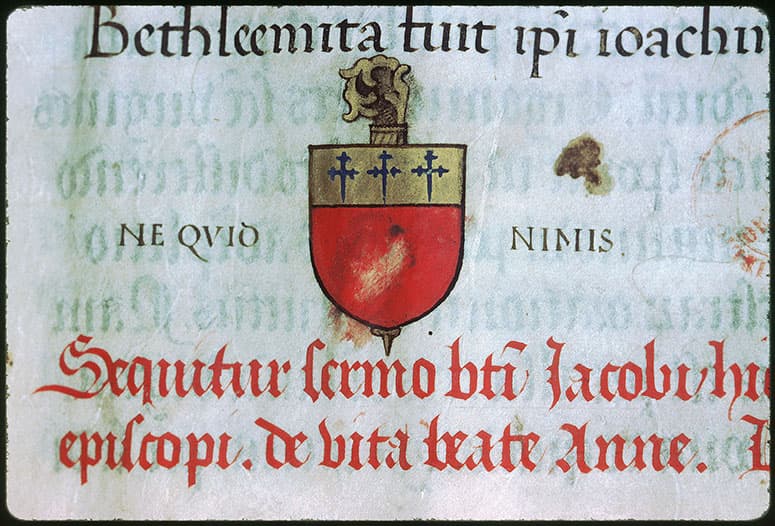 Bethleemita fuit ip̄i ioachi
NE QVID NIMIS.
Sequitur sermo bt̄i Jacobi
episcopi. de vita beate Anne.